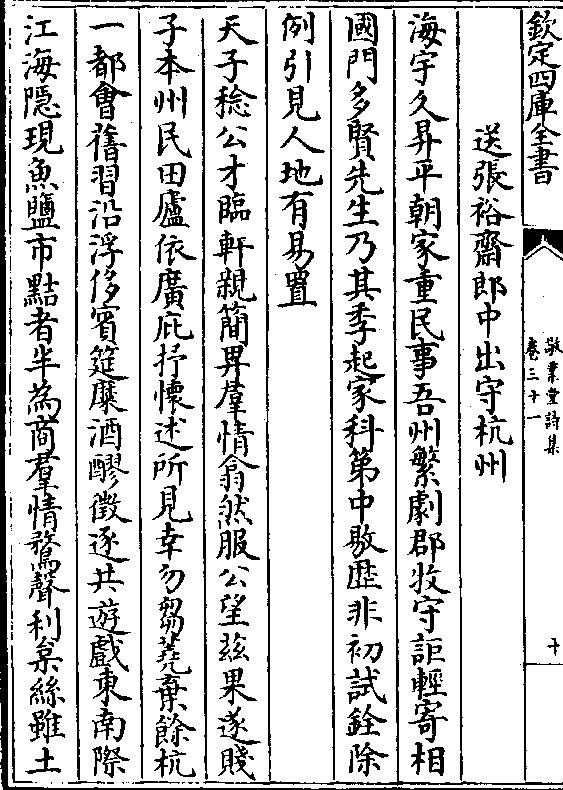 欽定四庫全書
敬業堂詩集
卷三十一
十
送張裕齋郎中出守杭州
海宇久昇平朝家重民事吾州繁劇郡牧守詎輕寄相
國門多賢先生乃其季起家科第中敭歴非初試銓除
例引見人地有易置
天子稔公才臨軒親簡畀羣情翕然服公望兹果遂賤
子本州民田廬依廣庇抒懷述所見幸勿芻蕘棄餘杭
一都會舊習沿浮侈賓筵糜酒醪徵逐共遊戲東南際
江海隱現魚鹽市黠者半為商羣情鶩聲利枲絲雖土